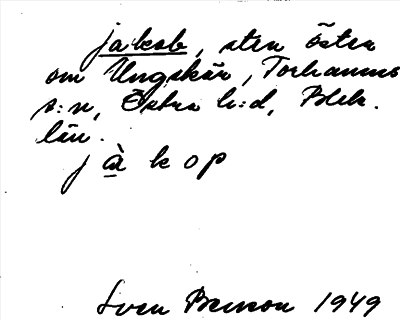 jakob, sten öster
om Ungskär, Torhamns
s:n, Östra h:d, Blek.
län.
jàkop
Sven Benson 1949